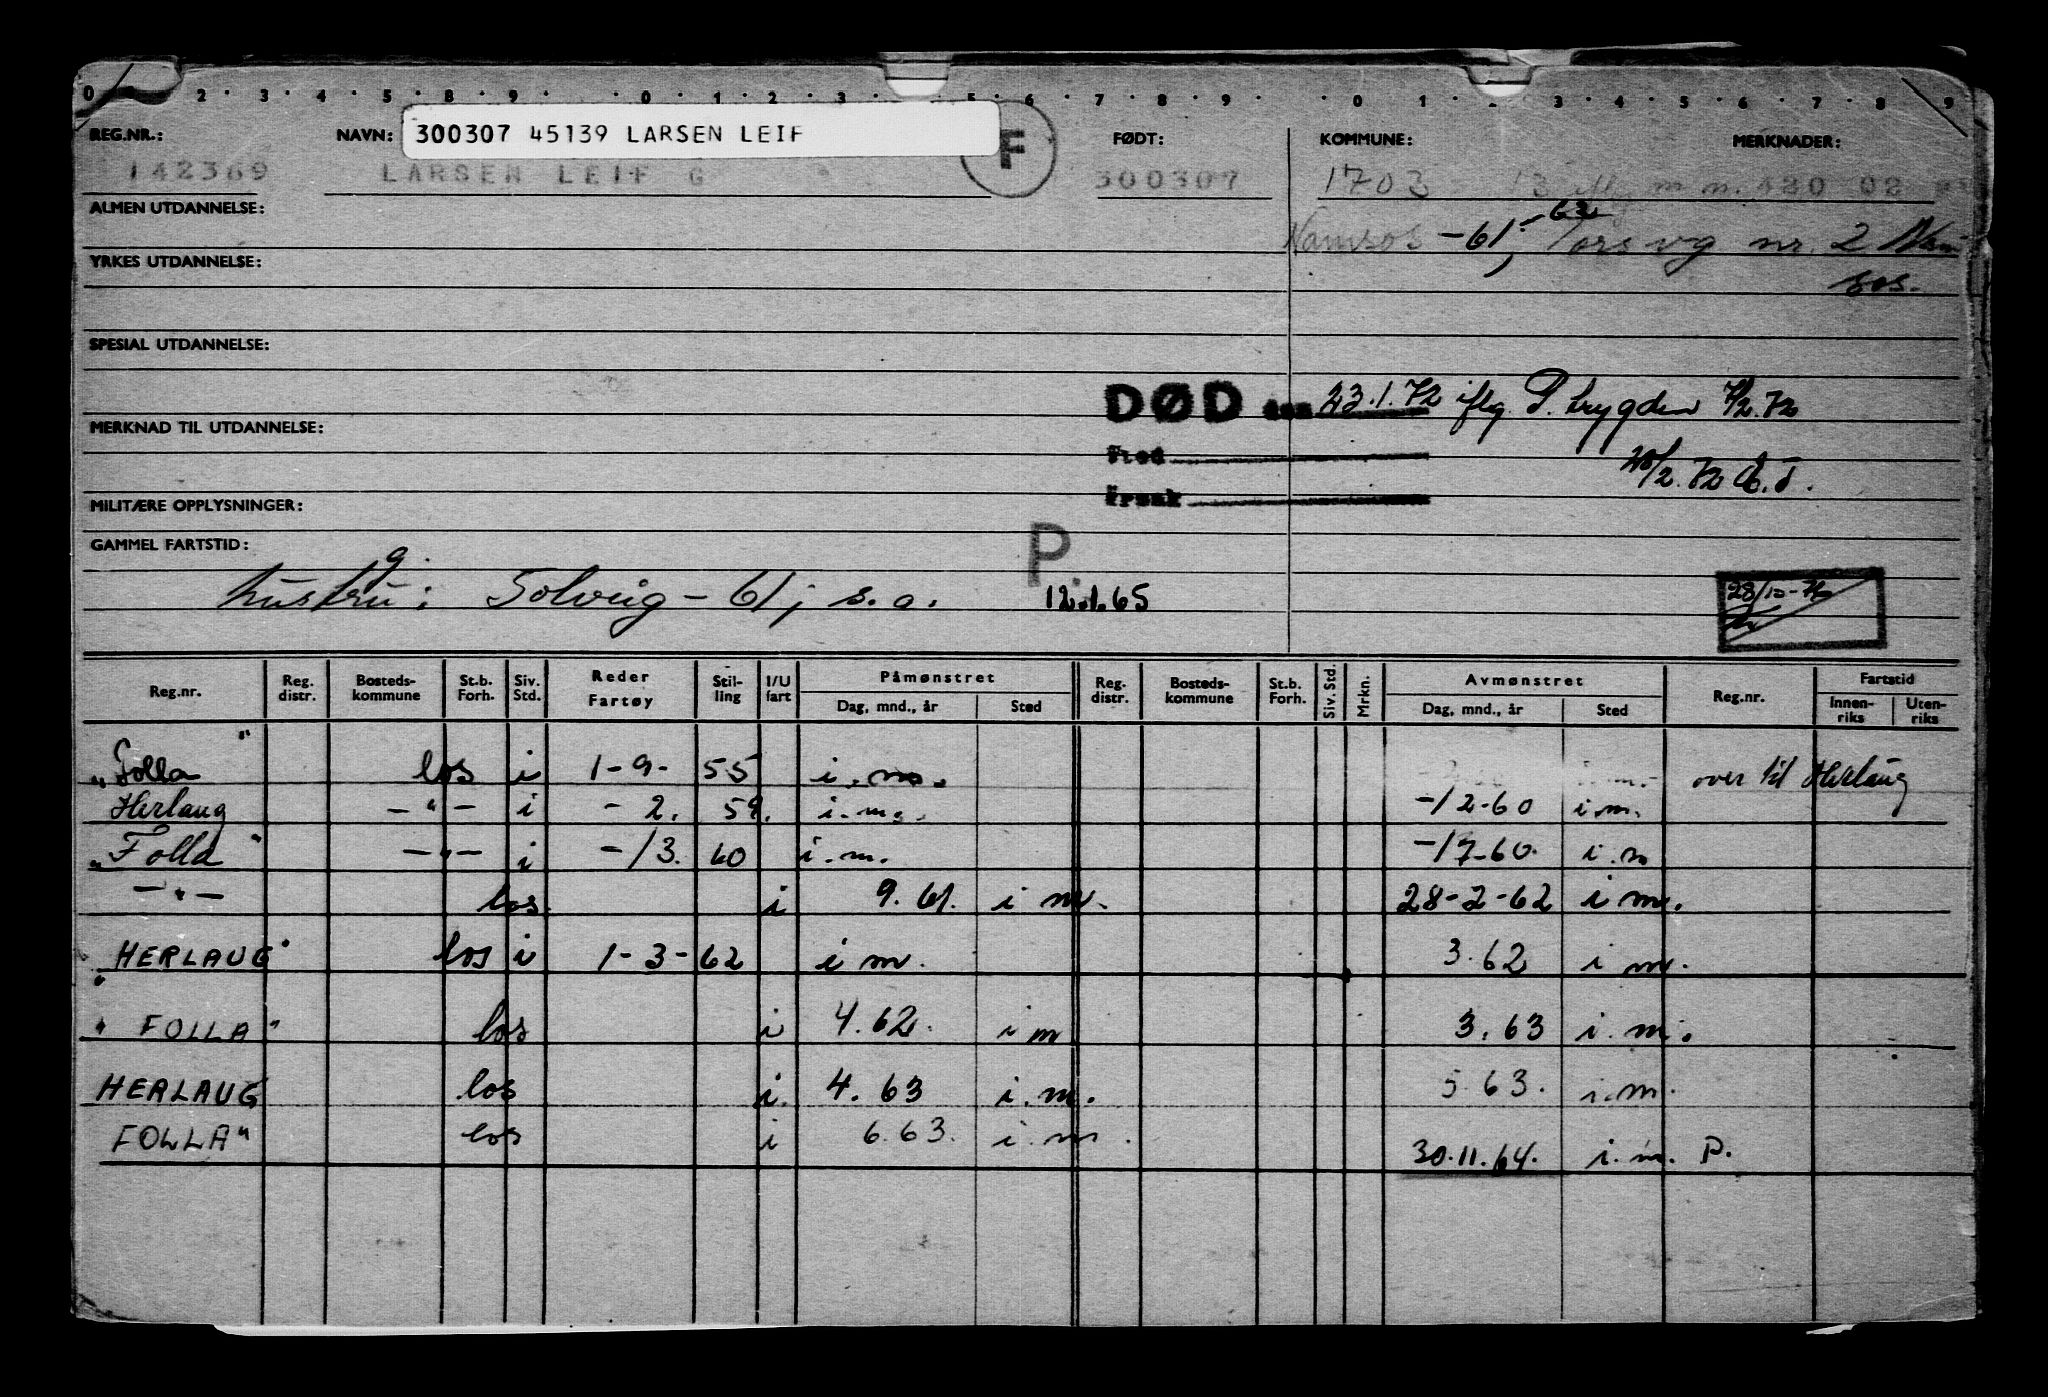 0 2 3 4 5 8 9 0 1 2 3 5 6 7 8 9 0 1 2 3 4 5 6 7 8 9
REG.NR.: NAVN: 300307 45139 LARSEN LEIF F FØDT: KOMMUNE: MERKNADER:
142369 LARSEN LEIF G 300307 1703
ALMEN UTDANNELSE:
Namsos -61, nr. 2 Nam
sos.
YRKES UTDANNELSE:
SPESIAL UTDANNELSE:
DØD den 23.1.72 iflg P. trygden 7/2.72
MERKNAD TIL UTDANNELSE:
Sted
Årsak
MILITÆRE OPPLYSNINGER:
GAMMEL FARTSTID: P.
g.
hustru: Solveig - 61; s.a. 12.1.65
Reg.nr. Reg. distr. Bosteds-kommune St.b. Forh. Siv. Std. Reder Fartøy Stil-ling I/U fart Påmønstret Dag, mnd., år Sted Reg. distr. Bosteds-kommune St.b. Forh. Siv. Std. Mrkn. Avmønstret Dag, mnd., år Sted Reg.nr. Fartstid Innen-riks Uten-riks
"Folla" los i 1-9-55 i.m. over til Herlaug
Herlaug -"- i -2.59. i.m. -12-60 i.m.
"Folla" -"- i -/3.60 i.m. -/7-60. i.m
-"- los i 9.61. i m. 28-2-62 i m.
"HERLAUG" los i 1-3-62 i m. 3.62 i m.
"FOLLA" los i 4.62. i m 3.63 i.m.
HERLAUG los i. 4.63 i.m. 5.63. i.m.
FOLLA" los i 6.63. i.m. 30.11.64. i.m. P.